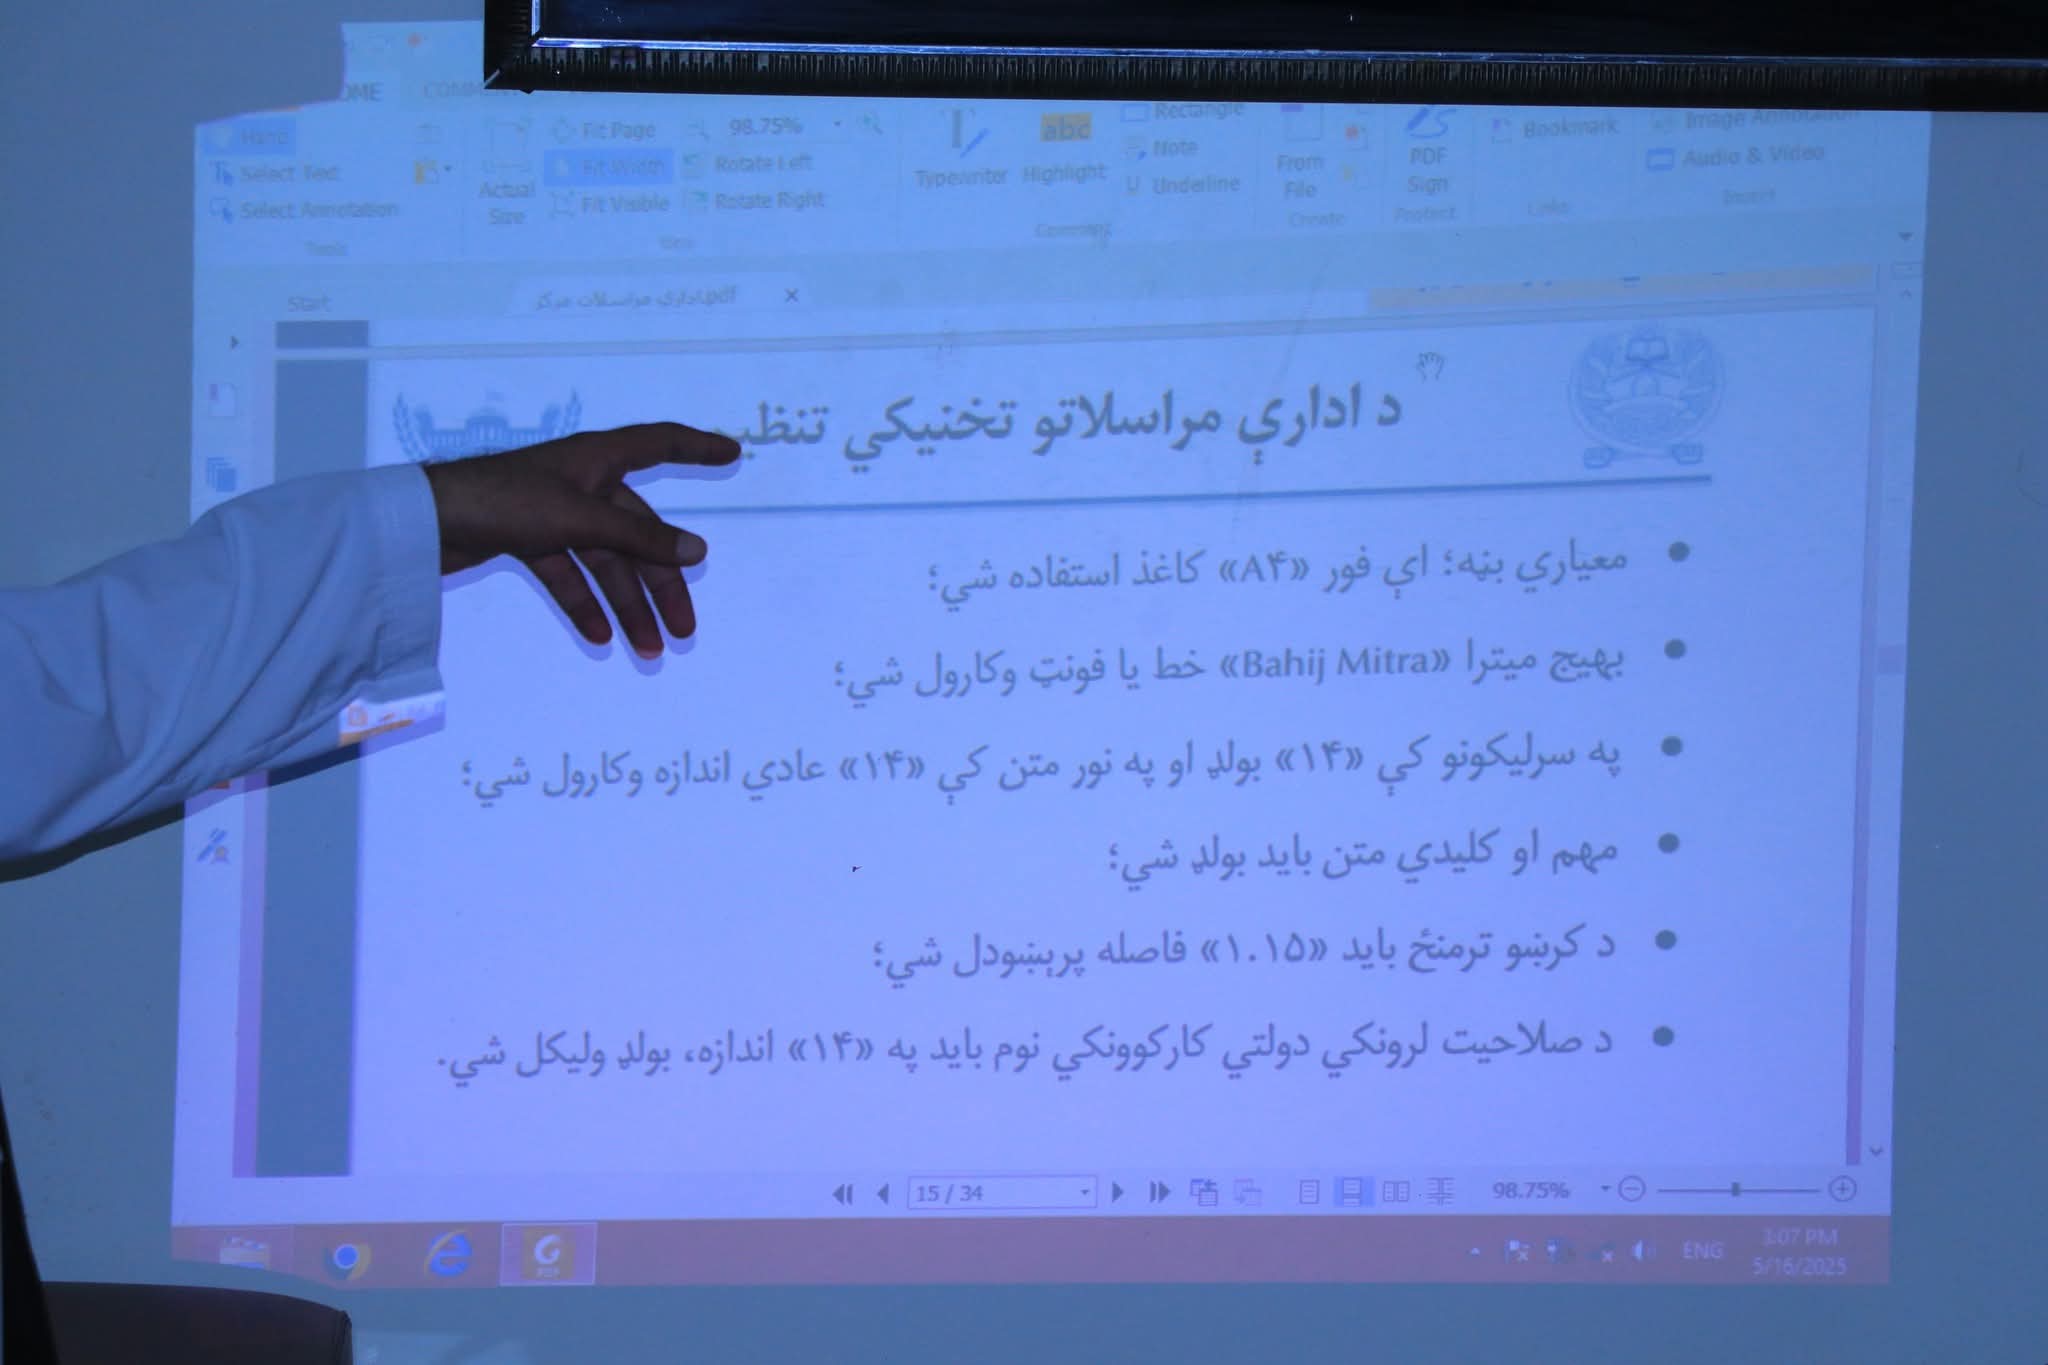 HOME
Hand
Select Text
Select Annotation
Tools
Actual Size
Fit Page
Fit Width
Fit Visible
98.75%
Rotate Left
Rotate Right
View
Typewriter
Highlight
Rectangle
Note
Underline
Comment
From File
Create
PDF Sign
Protect
Bookmark
Links
Image Annotation
Audio & Video
Insert
Start
اداري مراسلات مرکز.pdf
د ادارې مراسلاتو تخنیکي تنظیم
معیاري بڼه؛ اې فور «A۴» کاغذ استفاده شي؛
بهیج میترا «Bahij Mitra» خط یا فونټ وکارول شي؛
په سرلیکونو کې «۱۴» بولډ او په نور متن کې «۱۴» عادي اندازه وکارول شي؛
مهم او کلیدي متن باید بولډ شي؛
د کرښو ترمنځ باید «۱.۱۵» فاصله پرېښودل شي؛
د صلاحیت لرونکي دولتي کارکوونکي نوم باید په «۱۴» اندازه، بولډ ولیکل شي.
15 / 34
98.75%
ENG
3:07 PM
5/16/2025